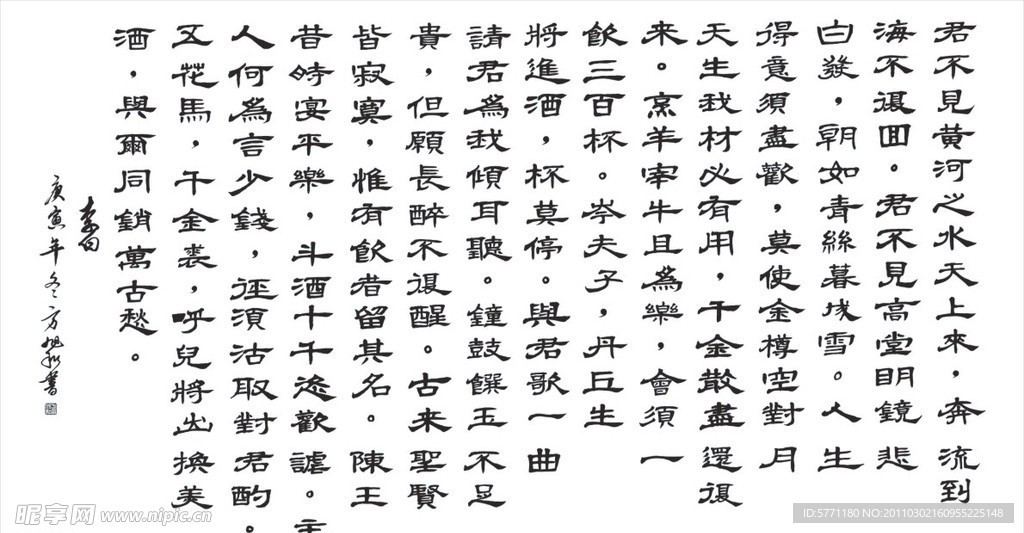 君不見黄河之水天上來，奔流到
海不復回。君不見高堂明鏡悲
白發，朝如青絲暮成雪。人生
得意須盡歡，莫使金樽空對月
天生我材必有用，千金散盡還復
來。烹羊宰牛且為樂，會須一
飲三百杯。岑夫子，丹丘生
將進酒，杯莫停。與君歌一曲
請君為我傾耳聽。鐘鼓饌玉不足
貴，但願長醉不復醒。古來聖賢
皆寂寞，惟有飲者留其名。陳王
昔時宴平樂，斗酒十千恣歡謔。主
人何為言少錢，徑須沽取對君酌。
五花馬，千金裘，呼兒將出換美
酒，與爾同銷萬古愁。
李白
庚寅年冬方書
昵享网 www.nipic.cn
ID:5771180 NO:20110302160955225148